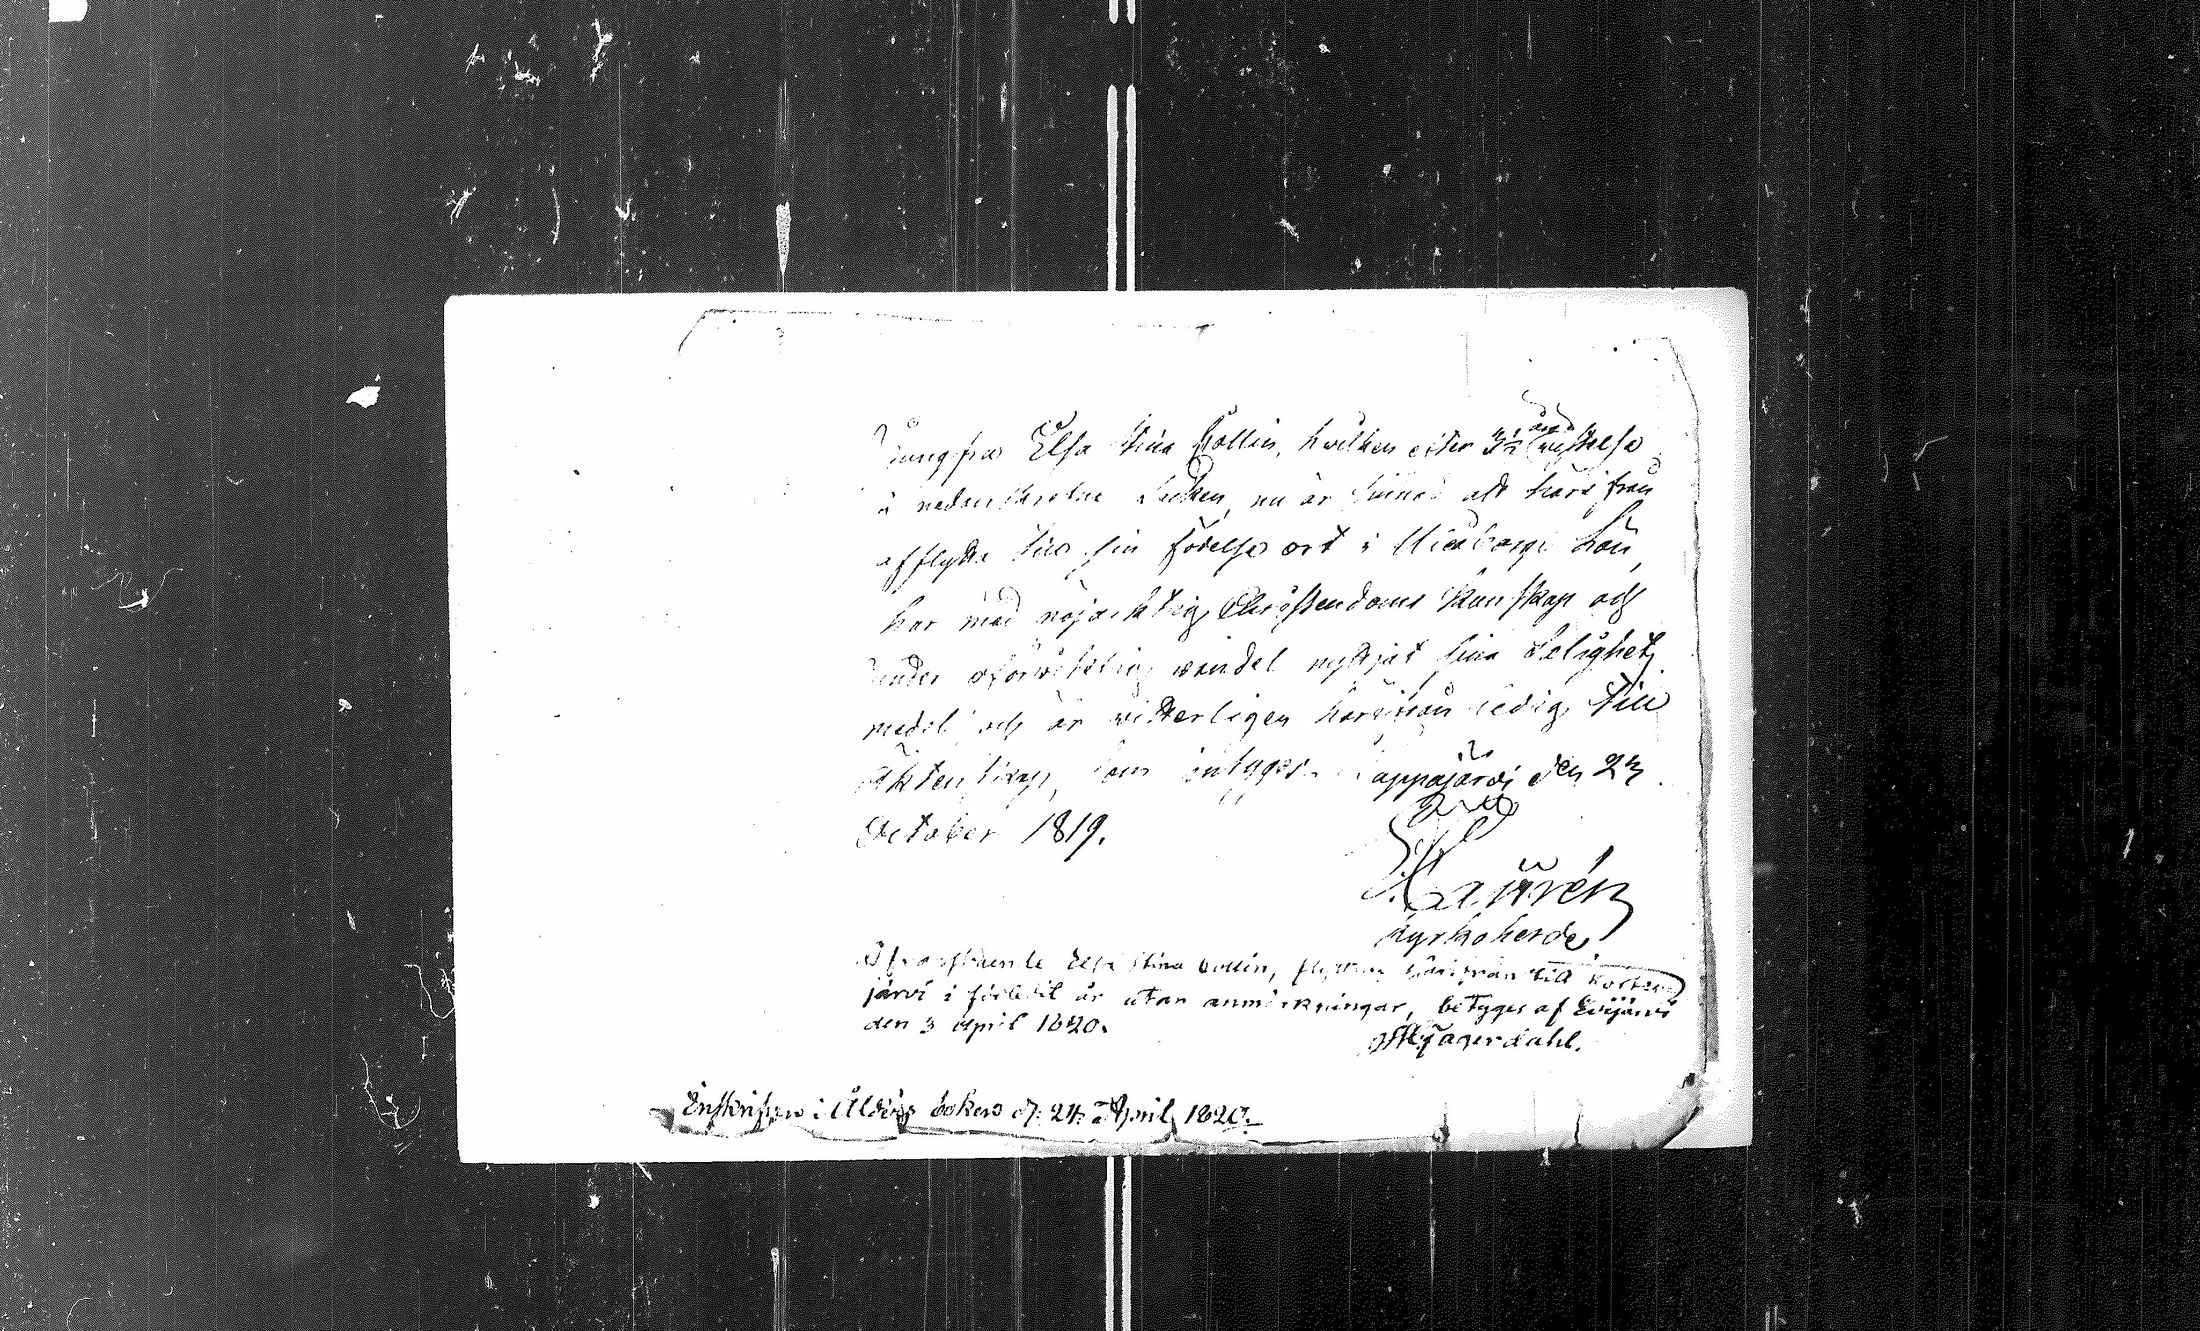 Jungfru Elsa Stina Collin, hvilken efter 3½ års vistelse
i nedanskrefne Socken, nu är sinnad att härifrån
afflytta till sin födelse ort i Uleåborgs Län,
har med nöjachtig Christendoms Kunskap och
under oförvitelig wandel nyttjat sina Salighets
medel och är witterligen härifrån ledig till
Äktenskap, som intygas. Lappajärvi den 23
October 1819.
Kyrkoherde
Ofvanstående Elsa Stina Collin, flyttar härifrån till Kortes
järvi i förledit år utan anmärkningar, betyges af Evijärvi
den 3 April 1820.
Jägerdahl.
Inskrifven i boken d. 24 April 1820.